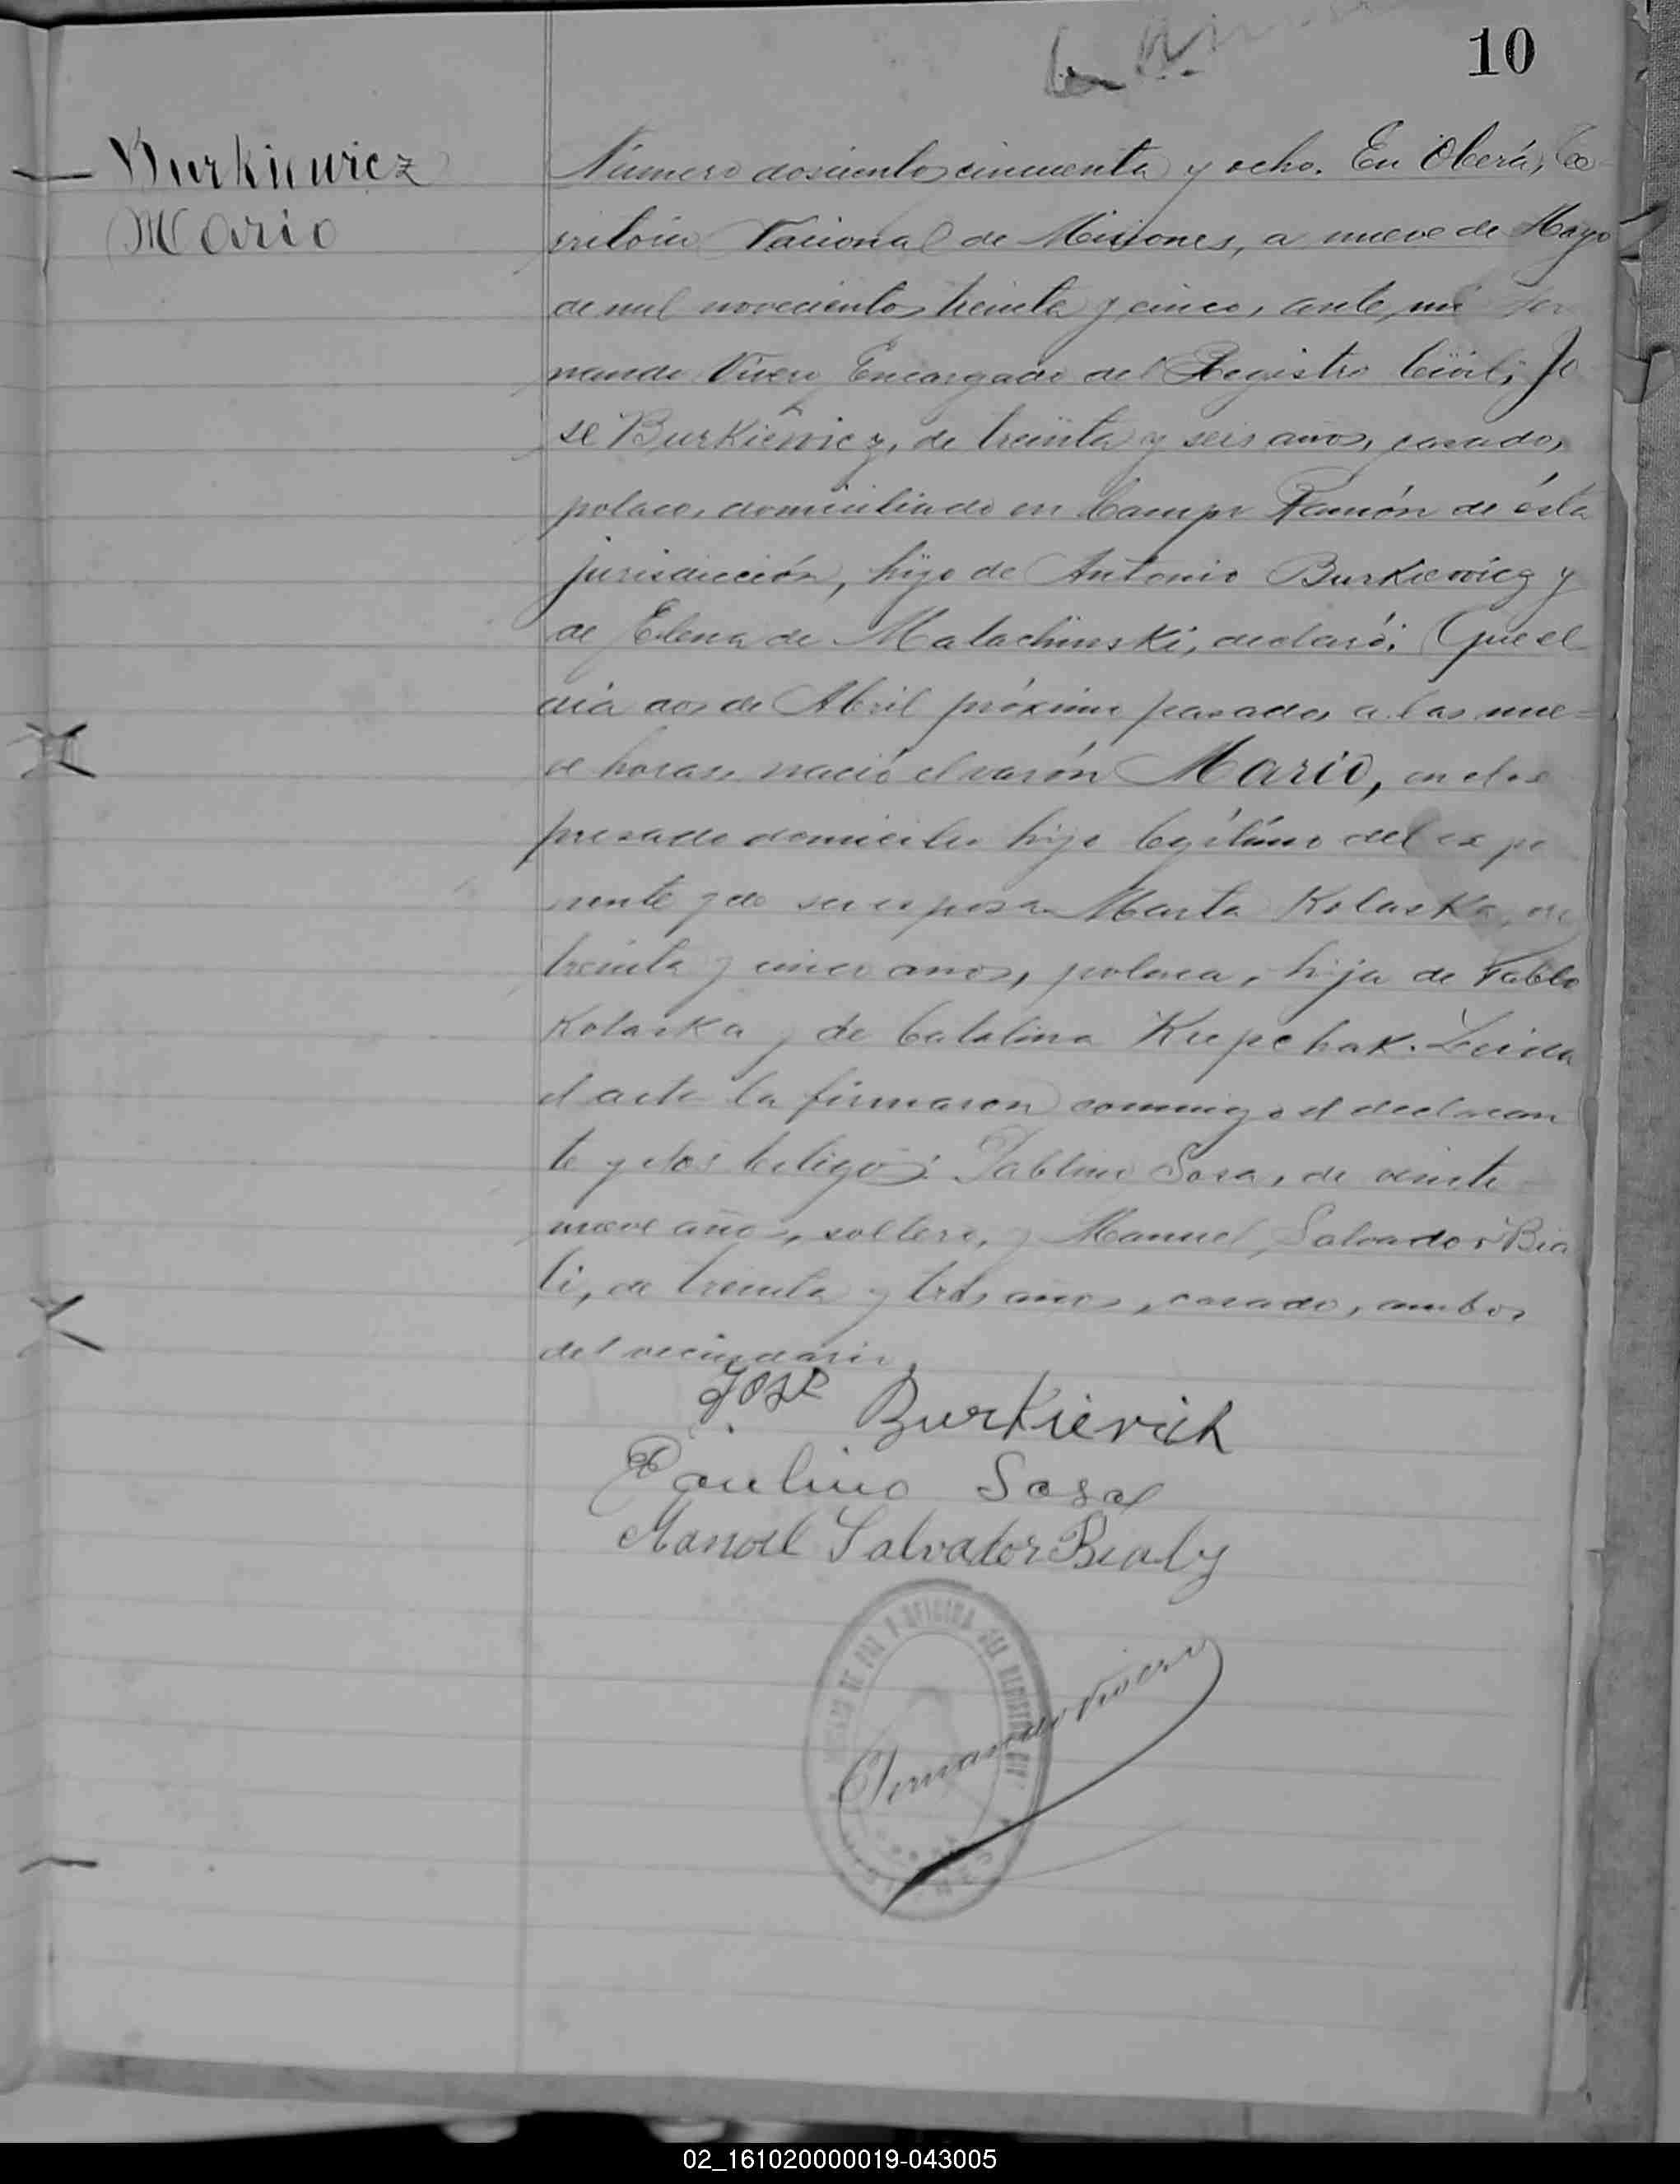 10
Burkiewicz
Mario
Número doscientos cincuenta y ocho. En Oberá, Te
rritorio Nacional de Misiones, a nueve de Mayo
de mil novecientos treinta y cinco, ante mi Fer
nando Vivero Encargado del Registro Civil, Jo
sé Burkiewicz, de treinta y seis años, casado,
polaco, domiciliado en Campo Ramón de ésta
jurisdicción, hijo de Antonio Burkiewicz y
de Elena de Malachinski, declaró: Que el
día dos de Abril próximo pasado, a las nue=
ve horas, nació el varón Mario, en el ex
presado domicilio hijo legítimo del expo
nente y de su esposa Marta Kolaska, de
treinta y cinco años, polaca, hija de Pablo
Kolaska y de Catalina Krepchak. Leida
el acta la firmaron conmigo el declaran
te y los testigos: Paulino Sosa, de veinte
nueve años, soltero, y Manuel Salvador Bia
li, de treinta y tres años, casado, ambos
del vecindario.
José Burkievich
Paulino Sosa
Manoel Salvator Bialy
JUZGADO DE PAZ Y OFICINA DEL REGISTRO CIVIL
Fernando Vivero
02_161020000019-043005